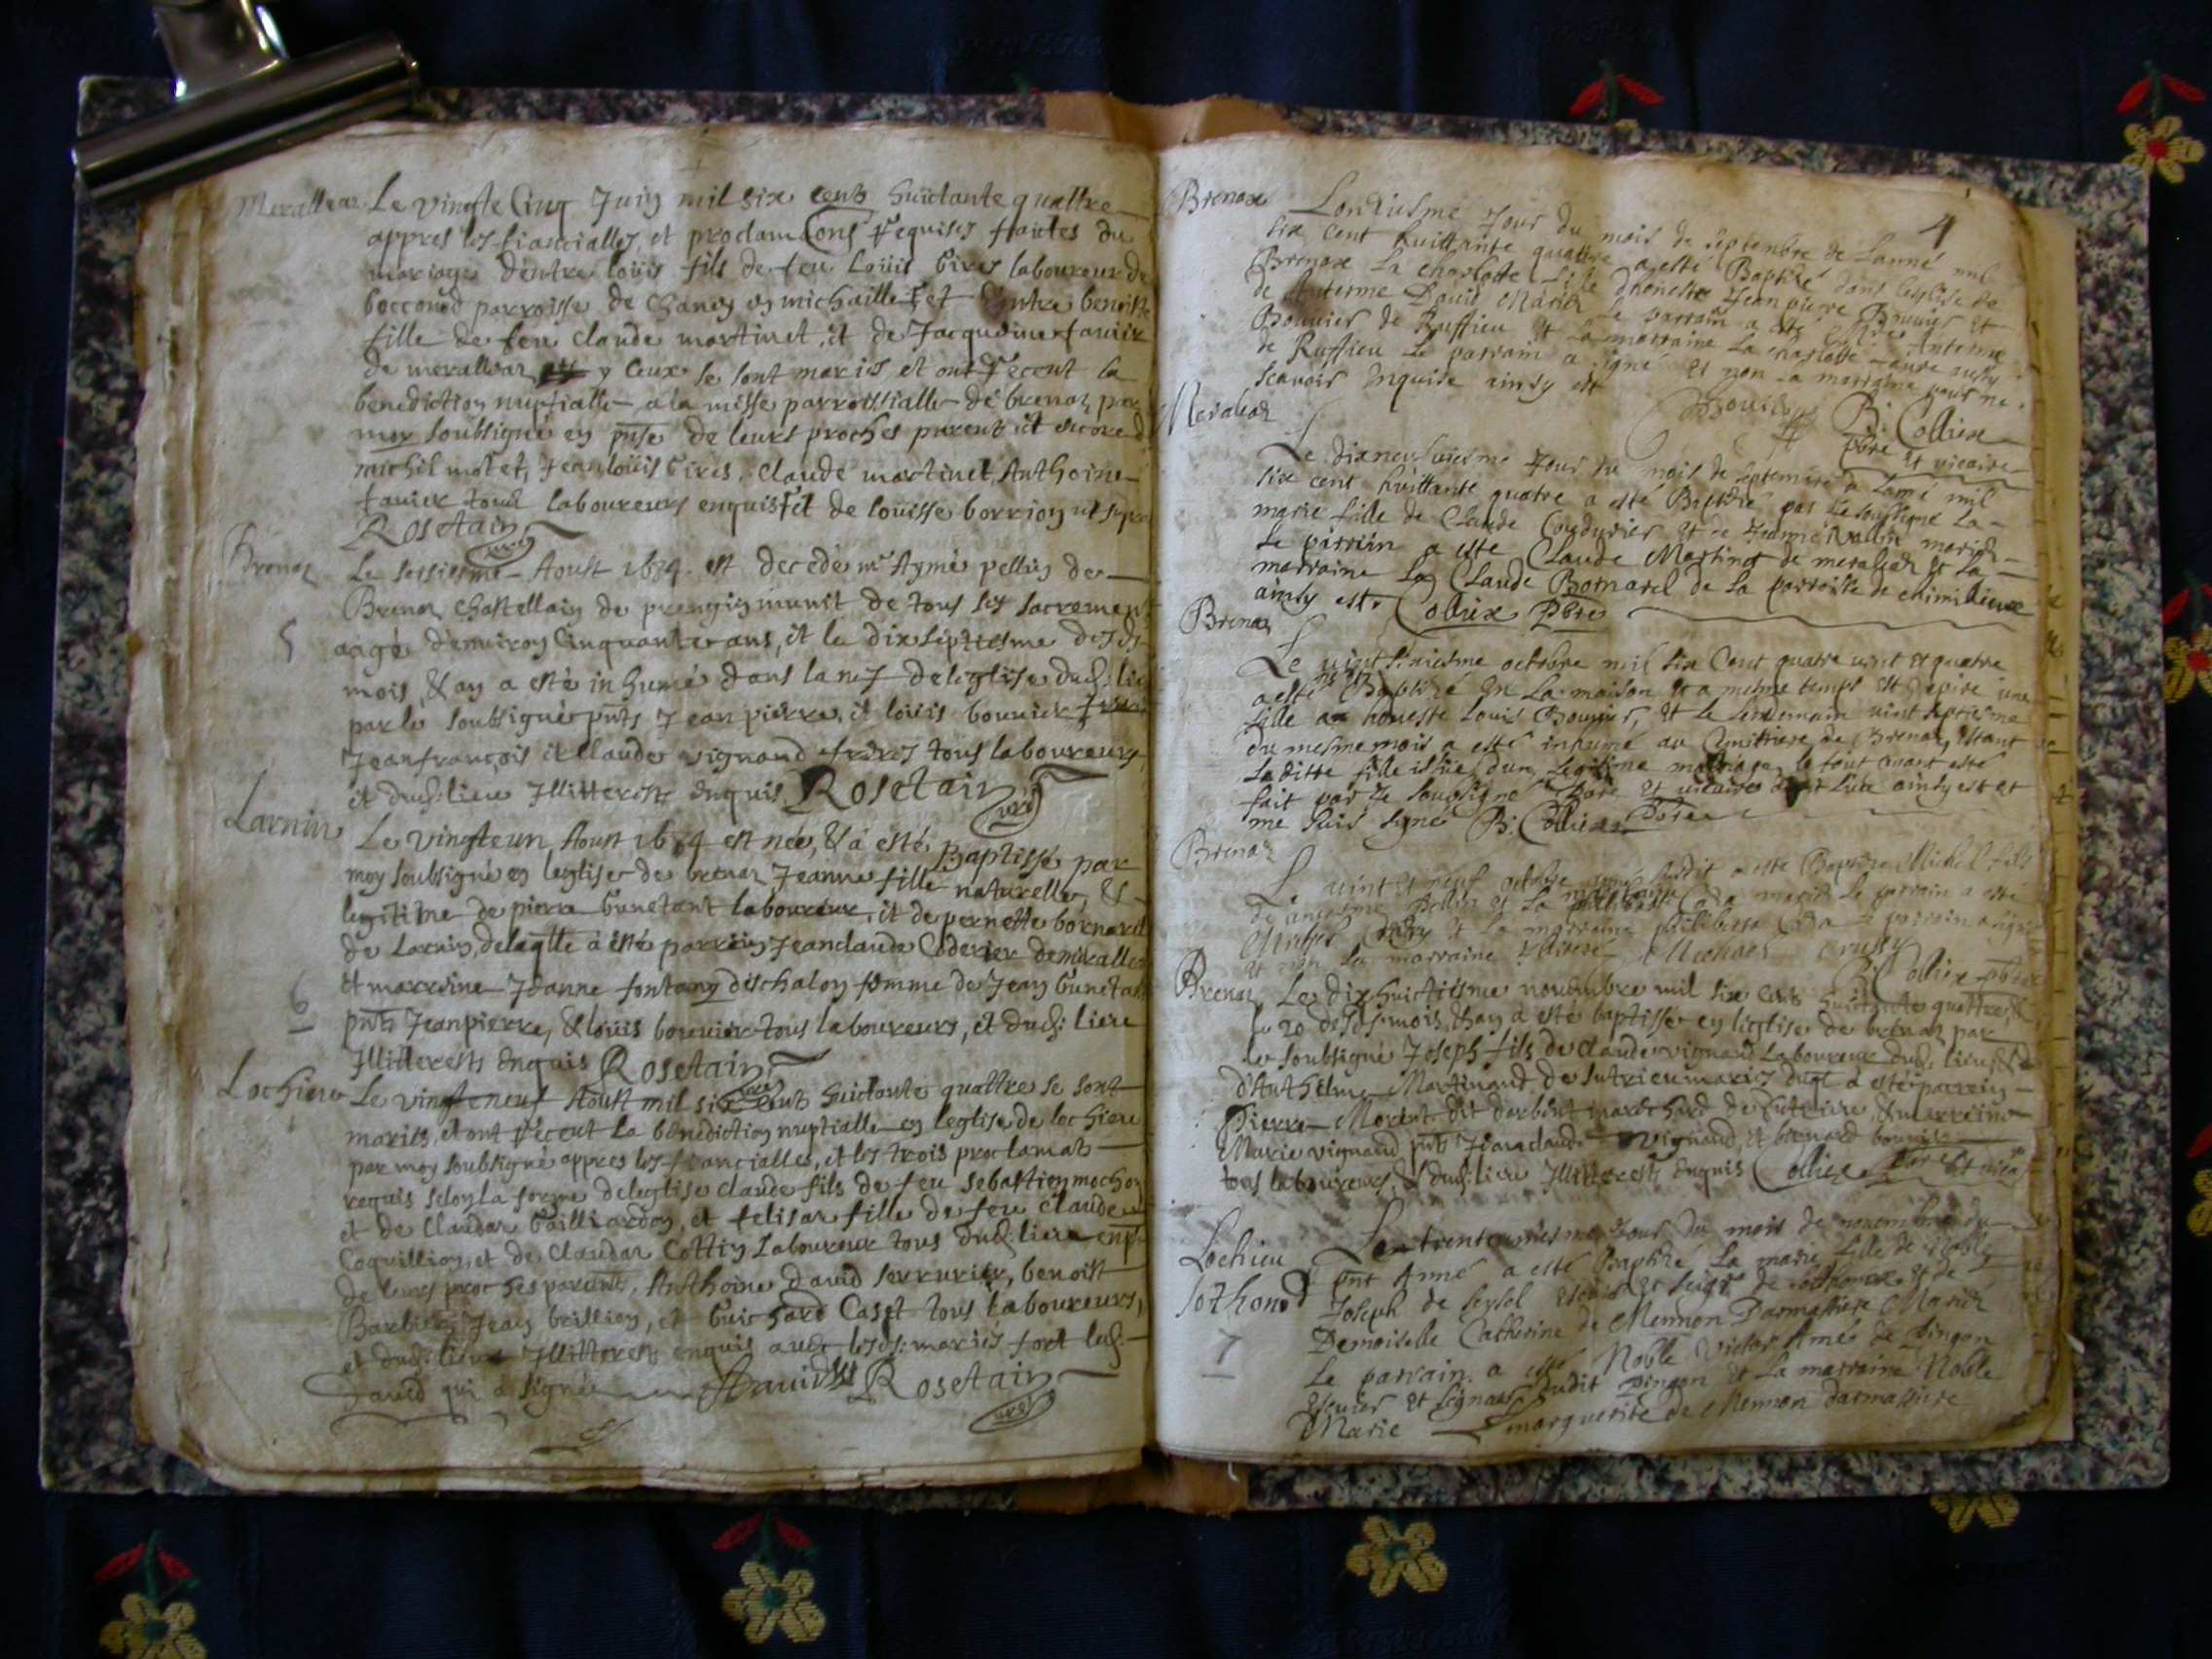 Merallear Le vingte Cinq Juin mil six cents huictante quattre
appres les fiancialles, et proclamaons requises faictes du
mariage d'entre loüis fils de feu Loüis bires laboureur de
boccond parroisse de Chaney en michaille et Entre benoiste
fille de feu claude martinet, et de Jacqueline favier
de merallear y Ceux se sont mariés et ont recent la
benediction nuptialle a la messe parroissialle de brenaz par
moy soubsigné en pnse de leurs proches parents et encore de
michel molet, Jean loüis bires, Claude martinet, Anthoine
favier tous laboureurs enquis et de louisse borrion ut supra
Rosetain
Brenaz Le seziesme Aoust 1684 est decede mr Aymé pellin de
Brenaz Chastellain de prengin munit de tous ses sacrements
5 aagé denviron Cinquante ans, et le dix septiesme desds
mois, & an a esté inhumé dans la nef de leglise dud: lieu
par le soubsigné pnts Jean pierre, et loüis bouvier freres
Jean françois et Claude vignand freres tous laboureurs
et dud: lieu Illitterests Enquis Rosetain
Larnin Le vingte un Aoust 1684 est née, & a esté Baptissé par
moy soubsigné en leglise de brenaz Jeanne fille naturelle, &
legitime de pierre Gunetant laboureur, et de pernette bornarel
de Larnin, delaqlle a esté parrein Jean claude Coderier de merallea
et marreine Jeanne fontany dischalon femme de Jean Gunetan
6 pnts Jean pierre, & loüis bouvier tous laboureurs, et dud: lieu
Illitterests Enquis Rosetain
Lochieu Le vingte neuf Aoust mil six cents huictante quattre se sont
mariés, et ont recent La benediction nuptialle en leglise de lochieu
par moy soubsigné appres les fiancialles, et les trois proclamats
requis selon la forme de leglise claude fils de feu sebastien mochon
et de Claudaz Gailliardon, et felisaz fille de feu Claude
Coquillion, et de Claudaz Cottin Laboureur tous dud: lieu enps
de leurs proches parents, Anthoine david serrurier, benoist
Barbier, Jean brillion, et Guichard Caset tous laboureurs,
et dud: lieu Illitterests enquis avec lesds: mariés fort led:
david qui a signé David Rosetain
4
Brenaz Lonziesme Jour du mois de septembre de Lanné mil
six cent huittante quattre a esté Baptizé dans leglise de
Brenaz La charlotte fille dhoneste Jean pierre Bouvier et
de Anterme David Mariés Le parrain a esté Anterme
Bouvier de Ruffieu et La marraine La charlotte aussy
de Ruffieu Le parrain a signé et non La marraine pour ne
scavoir Enquise ainsy est
B: Collier
pbre et vicaire
Meraleaz
Le dixneufviesme Jour du mois de septembre de Lanné mil
six cent huittante quatre a esté Baptizé par Le soussigné La
marie fille de Claude Coudurier et de Jeanne mariés
Le parrain a esté Claude Martinet de meraleaz et La
marraine La Claude Bornarel de La parroisse de chimilieux
ainsy est. Collier pbre
Brenaz
Le vint siziesme octobre mil six Cent quatre vint et quatre
a esté Baptizé En La maison et a mesme temps est expire une
fille a honeste Louis Bouvier, et le lendemain vint septiesme
du mesme mois a esté inhumé au Cimittiere de Brenaz, estant
Laditte fille issüe dun Legitime mariage, le tout ayant esté
fait par Le soussigné pbre et vicaire dudit Lieu ainsy est et
me suis signé B: Collier pbre
Brenaz
Le vint et neuf octobre susdit a esté Baptizé Michel fils
de pellin et La Coda mariés Le parrain a esté
et La marraine philiberte Coda Le parrain a signé
et non La marraine Michael
B: Collier pbre
Brenaz Le dix huictiesme novembre mil six cents huictante quattre,
le 20 desds mois, & an a esté baptissé en leglise de brenaz par
le soubsigné Joseph fils de claude vignand Laboureur dud: lieu, & de
d'Anthelme Martinand de sutrieu mariés duql a esté parrein
Pierre Morent dit darbent marechard de sutrieu, & marreine
Marie vignand pnts Jean claude vignand, et bernard bouvier
tous laboureurs, & dud: lieu Illitterests Enquis Collier pbre et vica
Lochieu Le trentuniesme Jour du mois de novembre du
sothonod pnt Anné a esté Baptizé La marie fille de Noble
Joseph de seysel escuier et seigr de sothonoz et de
Demoiselle Catherine de Mennon Darmassiere Mariés
7 Le parrain a esté Noble Victor Amé de pingon
Escuier et seigneur dudit pingon et La marraine Noble
Marie marguerite de Mennon darmassiere